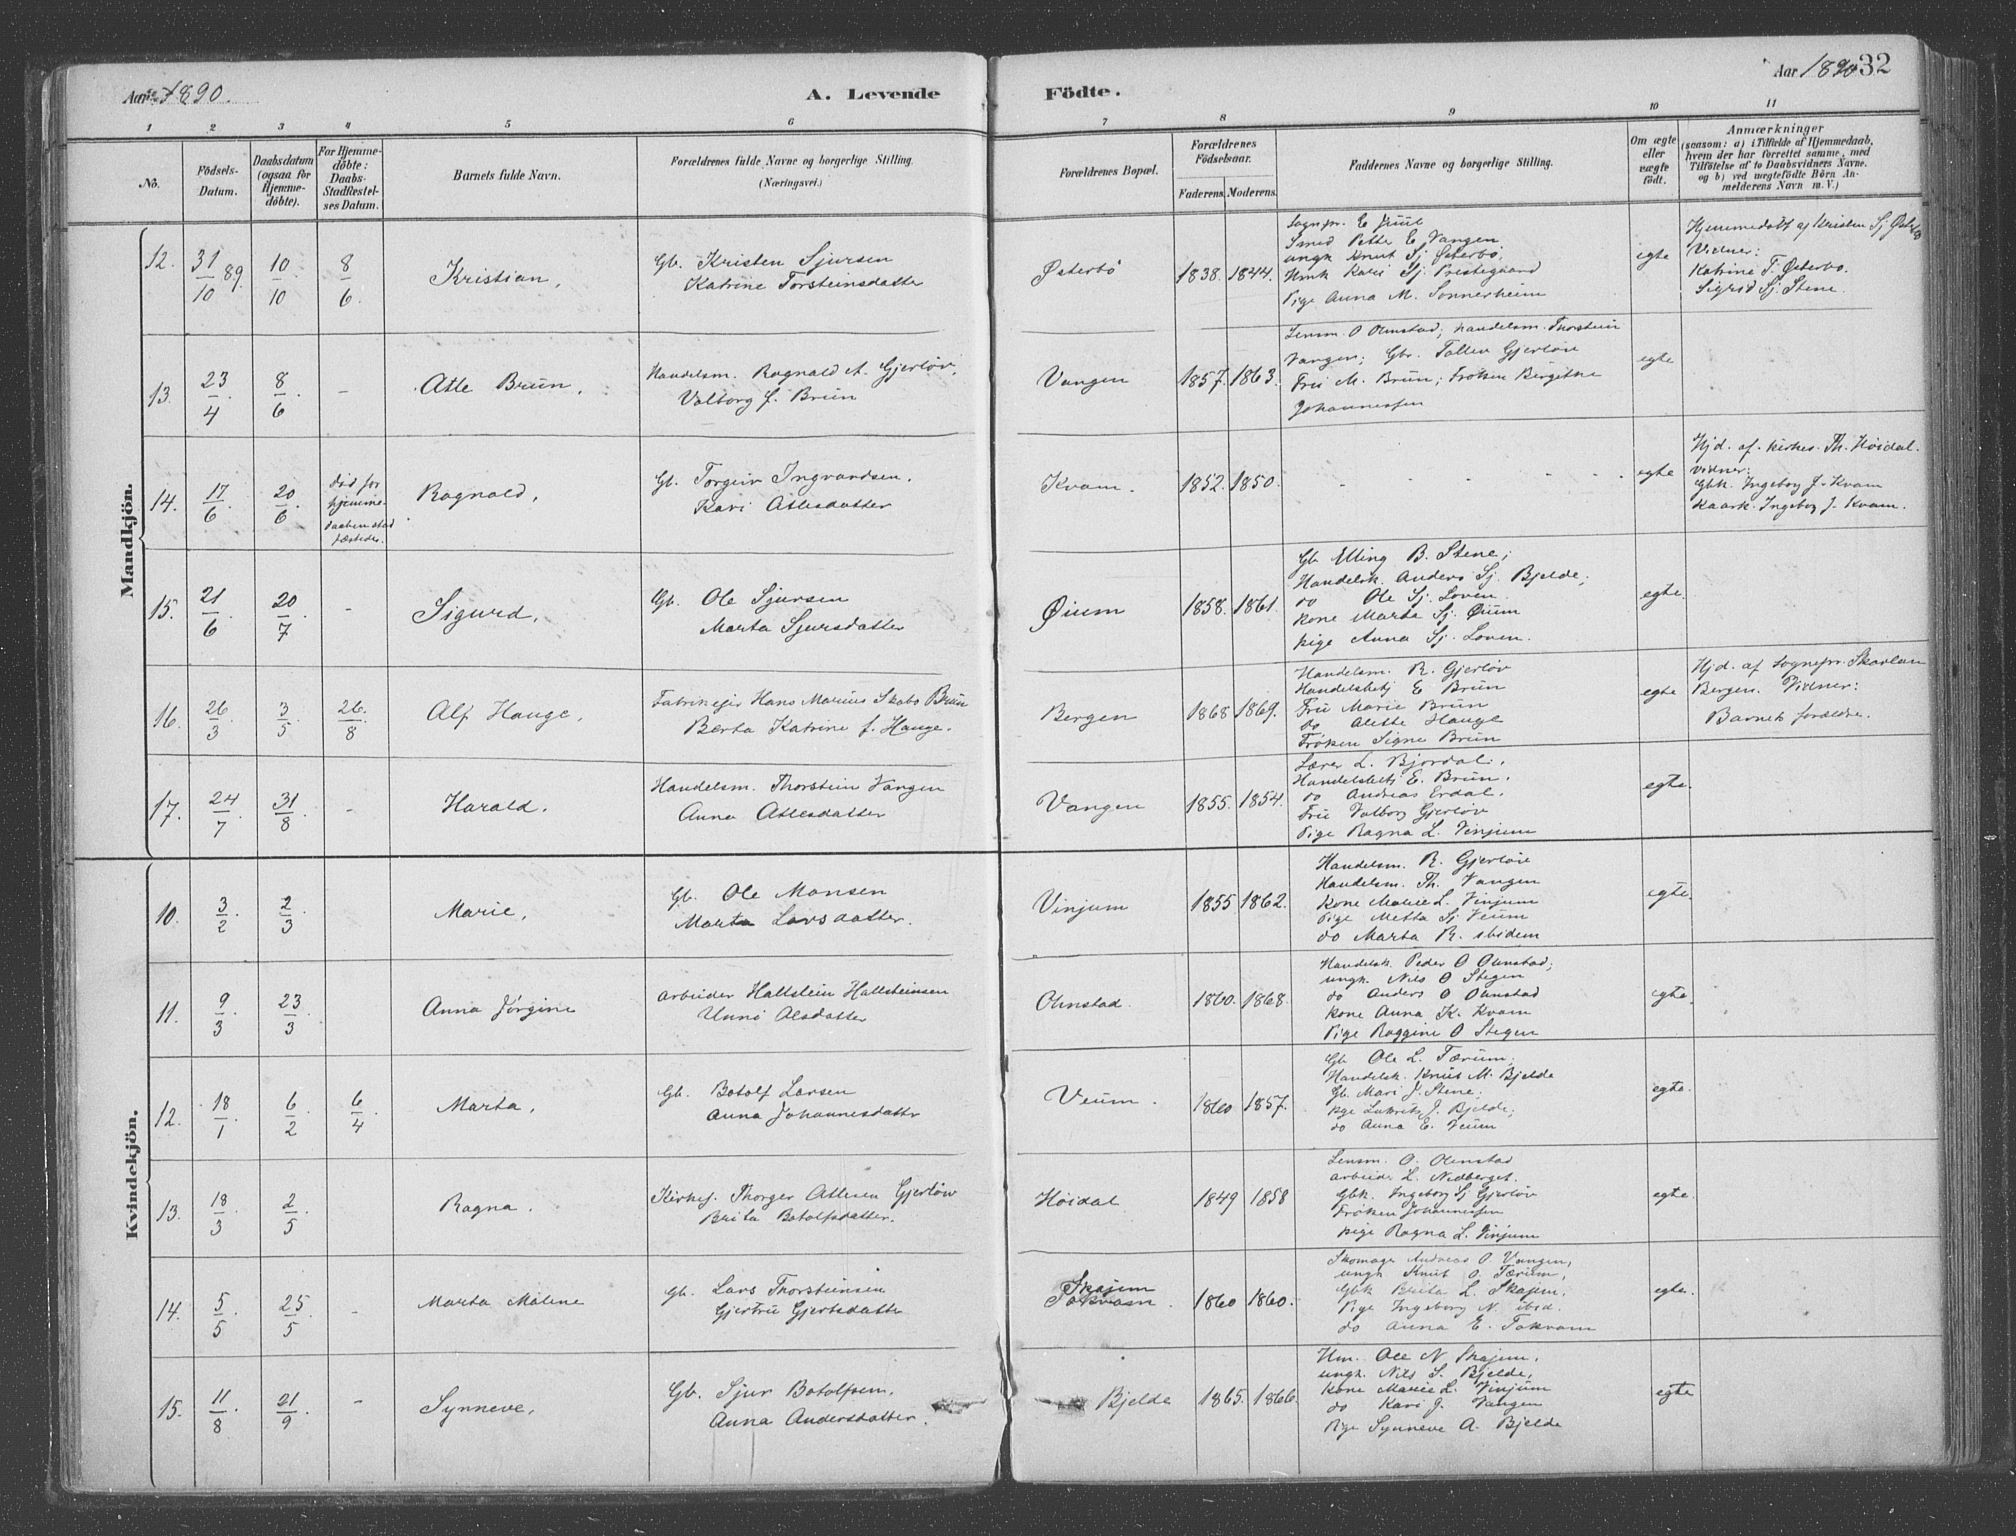 Aar 1890.
A. Levende
Födte.
Aar 1890
32
1 2 3 4 5 6 7 8 9 10 11
No.
Födsels-
Datum.
Daabsdatum
(ogsaa for
Hjemme-
döbte).
For Hjemme-
döbte:
Daabs-
Stadfæstel-
ses Datum.
Barnets fulde Navn.
Forældrenes fulde Navne og borgerlige Stilling.
(Næringsvei.)
Forældrenes Bopæl.
Forældrenes
Födselsaar.
Faderens. Moderens.
Faddernes Navne og borgerlige Stilling.
Om ægte
eller
uægte
födt.
Anmærkninger
(saasom: a) i Tilfælde af Hjemmedaab,
hvem der har forrettet samme, med
Tilföielse af to Daabsvidners Navne,
og b) ved uægtefödte Börn An-
melderens Navn m. V.)
Mandkjön.
12. 31/10 89. 10/10 8/6 Kristian,
Gb. Kristen Sjursen
Katrine Torsteinsdatter
Østerbö 1838. 1844.
Sognpr. E Juul
Smed Petter E. Vangen
ungk Knut Sj. Østerbo,
Hmk Kari Sj. Prestegaard
Pige Anna M. Sonnerheim
egte
Hjemmedøbt af Kristen Sj Østerbø
Vidner:
Katrine T. Østerbo.
Sigrid Sj. Stene.
13. 23/4. 8/6. - Atle Brun,
Handelsm. Ragnald A. Gjerløv,
Valborg f. Brun
Vangen 1857. 1863.
Lensm. O Ohnstad; handelsm. Thorstein
Vangen; Gbr. Tollev Gjerløv
Fru M. Brun; Frøken Bergithe
Johannessen
egte
14. 17/6. 20/6. død før
hjemme-
daaben stad
fæstedes.
Ragnald,
Gb. Torgeir Ingvardsen,
Kari Atlesdatter
Kvam. 1852. 1850.
egte
Hjd. af. kirkes. Th. Høidal.
vidner:
Gbk. Ingeborg J. Kvam
Kaark. Ingeborg J. Kvam.
15. 21/6 20/7 - Sigurd,
Gb. Ole Sjursen
Marta Sjursdatter
Øium 1858. 1861.
Gb Elling B. Stene;
Handelsk. Anders Sj. Bjelde;
do Ole Sj. Loven.
kone Marta Sj. Øium
pige Anna Sj. Loven.
egte.
16. 26/3. 3/5. 26./8 Alf Hauge,
Fabrikejer Hans Marius Skabo Brun
Berta Katrine f. Hauge.
Bergen 1868 1869.
Handelsm. R. Gjerløv
Handelsbetj E Brun
Fru Marie Brun
do Alette Hauge
Frøken Signe Brun
egte
Hjd. af Sognepr. Skavlan
Bergen. Vidner:
Barnets forældre.
17. 24/7. 31/8 - Harald.
Handelsm. Thorstein Vangen
Anna Atlesdatter
Vangen 1855. 1854.
Lærer L. Bjordal.
Handelsbetj E. Brun.
do Andreas Erdal.
Fru Valborg Gjerløv
Pige Ragna L. Vinjum
egte.
Kvindekjön.
10. 3/2. 2/3. Marie,
Gb. Ole Monsen
Marta Larsdatter.
Vinjum 1855 1862.
Handelsm. R. Gjerløv
Handelsm. Th. Vangen
Kone Marie L. Vinjum
Pige Metta Sj Veum
do Marta R. ibidem
egte.
11. 9/3. 23/3 Anna Jørgine
arbeider Hallstein Hallsteinsen
Unni Olsdatter
Ohnstad. 1860. 1868.
Handelsk. Peder O Ohnstad;
ungk. Nils O Stegen
do Anders O Ohnstad
kone Anna K. Kvam
Pige Raggine O Stegen
egte.
12. 18/1 6/2 6/4. Marta,
Gb. Botolf Larsen
Anna Johannesdatter
Veum. 1860 1857.
Gb Ole L. Tærum.
Handelsk. Knut M. Bjelde
Gb. Mari J. Stene;
pge J. Bjelde;
do Anna E. Veum
egte.
13. 18/3 2/5. Ragna.
Kirkes. Thorger Atlesen Gjerløw
Brita Botolfsdatter.
Høidal 1849 1858
Lensm. O. Ohnstad
arbeider L. Nedberget.
Gbk. Ingeborg Sj Gjerløv
Frøken Johannessen
pige Ragna L. Vinjum
egte.
14. 5/5. 25/5. - Marta Maline
Gb. Lars Thorsteinsen
Gjertru Gjertsdatter
Skajem
Tokvam. 1860 1860.
Skomager Andreas O. Vangen,
ungk Knut O. Tærum,
Gbk Brita L. Skajem.
Pige Ingeborg N. ibid.
do Anna E. Tokvam
egte.
15. 11/8. 21/9. - Synneve,
Gb. Sjur Botolfsen.
Anna Andersdatter.
Bjelde 1865. 1866.
Hm. Ole N Skajem.
ungk. Nils S. Bjelde,
kone Marie L. Vinjum
do Kari J. Vangen
Pge Synneve A. Bjelde
egte